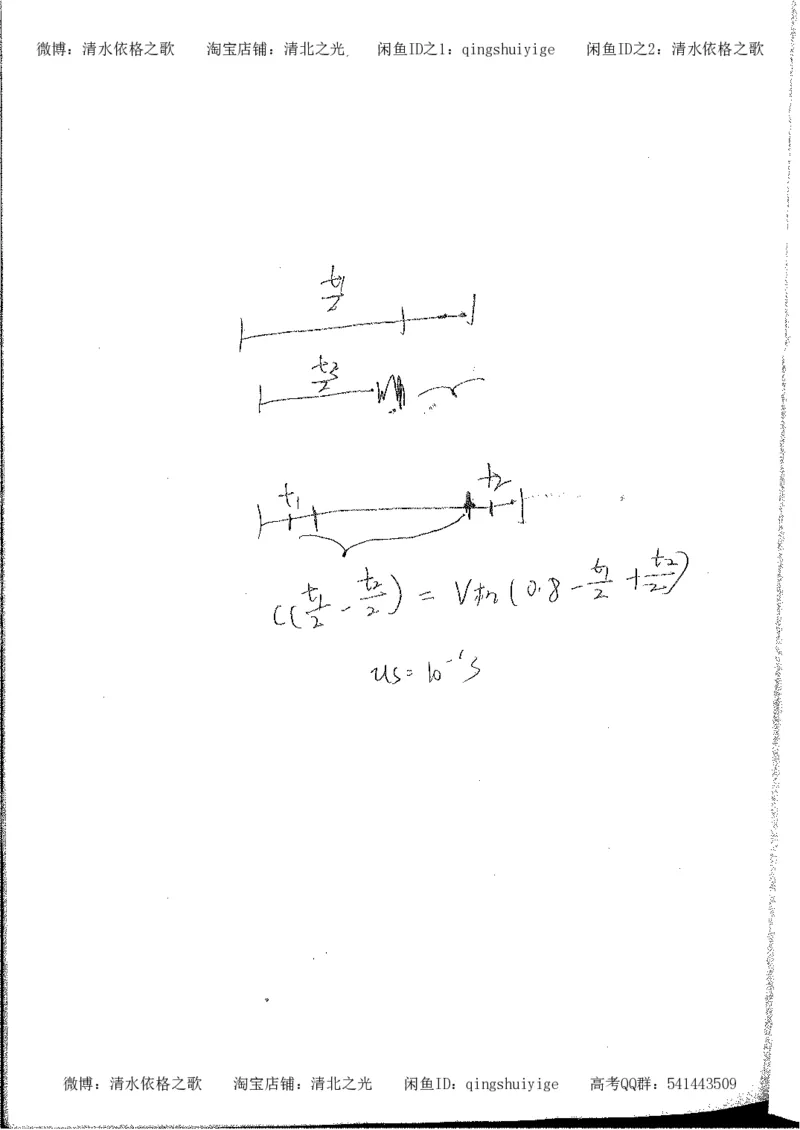 微博：清水依格之歌 淘宝店铺：清北之光 闲鱼ID之1：qingshuiyige 闲鱼ID之2：清水依格之歌
t1/2
t2/2
t1 t2
C(t1/2 - t2/2) = V标(0.8 - t1/2 + t2/2)
us = 10^-6 s
微博：清水依格之歌 淘宝店铺：清北之光 闲鱼ID：qingshuiyige 高考QQ群：541443509